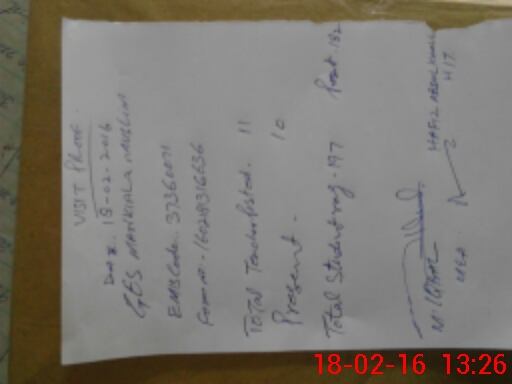 VISIT Proof
Date.. 18-02-2016
GES MANKIALA MUSLIM
EMIS Code.. 37360071
Form no:-160218316636
TOTAL Teacher Posted. 11
Present - 10
Total Student reg-197 Present-182
M. IQBAL HAFIZ ABDUL
MEA H/T
18-02-16 13:26